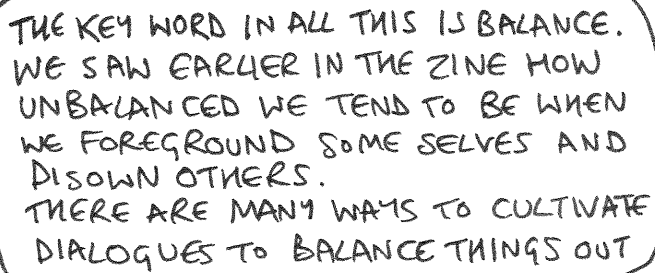 THE KEY WORD IN ALL THIS IS BALANCE.
WE SAW EARLIER IN THE ZINE HOW
UNBALANCED WE TEND TO BE WHEN
WE FOREGROUND SOME SELVES AND
DISOWN OTHERS.
THERE ARE MANY WAYS TO CULTIVATE
DIALOGUES TO BALANCE THINGS OUT